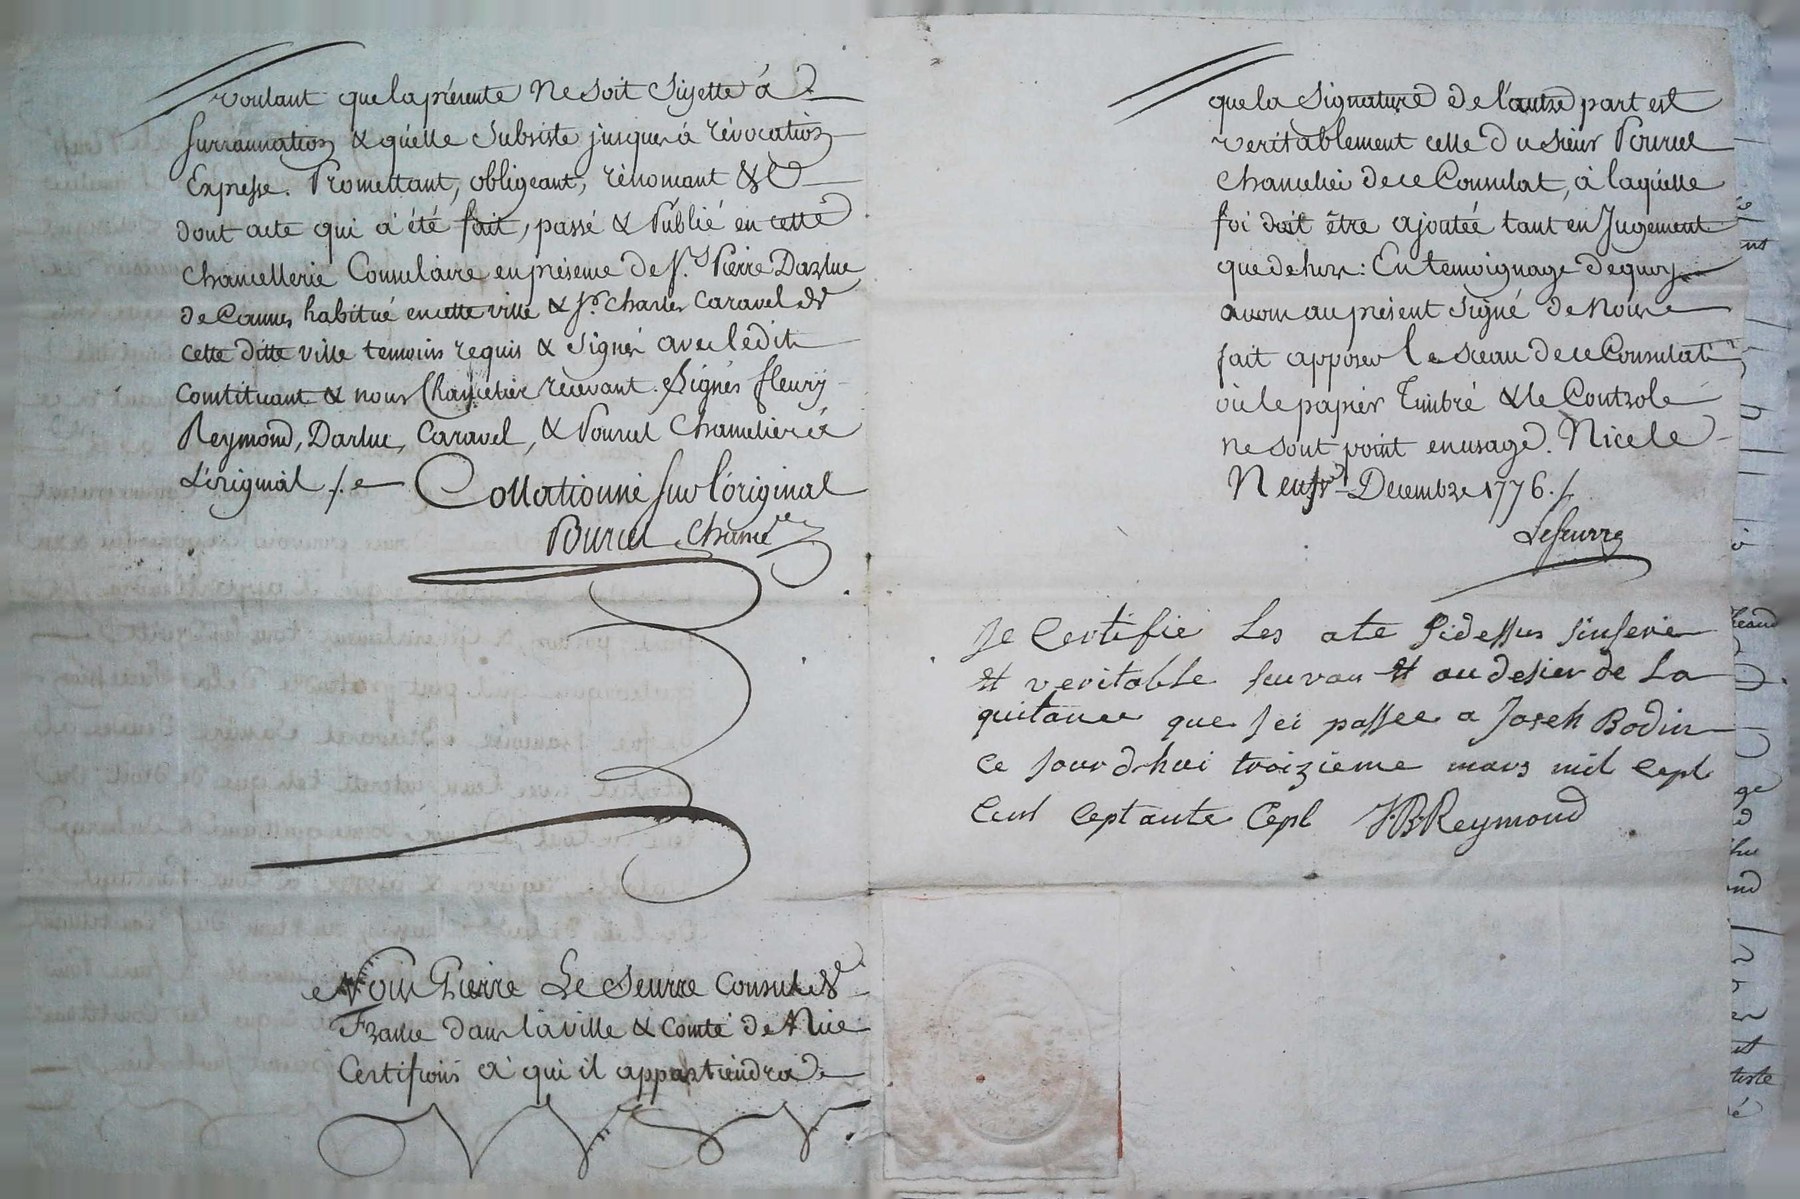 voulant que la présente ne soit sujette à
surrannation & qu'elle subsiste jusques à révocation
Expresse. Promettant, obligeant, rénonçant &c
dont acte qui à été fait, passé & Publié en cette
Chancellerie Consulaire en présence de Sr. Pierre Darluc
de Cannes habitué en cette ville & Sr. Charles Caravel de
cette ditte ville temoins requis & signés avec ledit
Constituant & nous Chancelier recevant. Signés fleury
Reymond, Darluc, Caravel, & Pourcel Chancelier à
L'original ./.
Collationné sur l'original
Pourcel Chancer
Nous Pierre Le Seurre Consul de
France dans la ville & Comté de Nice
Certifions à qui il appartiendra
que la signature de l'autre part est
veritablement celle du sieur Pourcel
Chancelier de ce Consulat, à laquelle
foi doit être ajoutée tant en Jugement
que dehors: En temoignage de quoy
avons au présent signé de Nous
fait apposer le sceau de ce Consulat
où le papier Timbré & le Controle
ne sont point en usage. Nice le
Neuf Decembre 1776 ./.
LeSeurre
Je Certifie Les ate Sidessus sinserie
et veritable suivan et au desier de La
quitance que jei passee a Joseh Bodin
ce jourdhui troizieme mars mil Cept
Cent Ceptante Cept J.B. Reymond